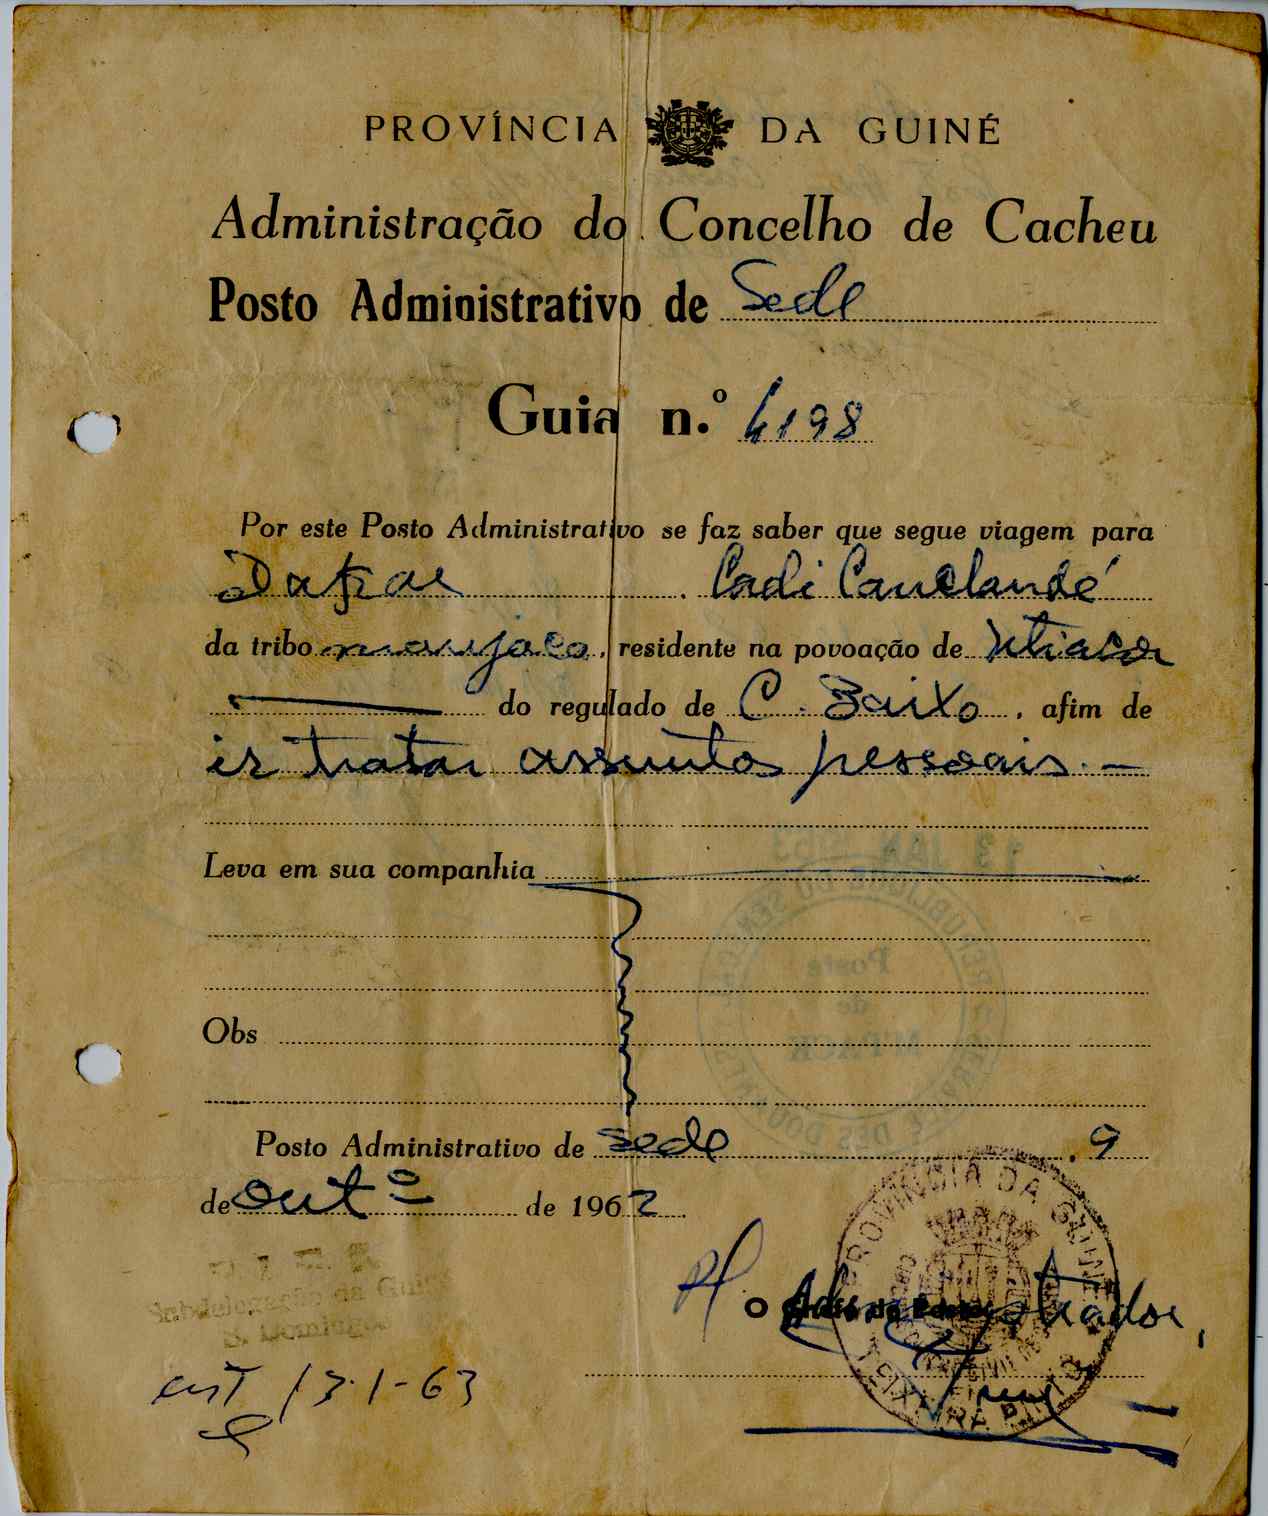 PROVÍNCIA DA GUINÉ
Administração do Concelho de Cacheu
Posto Administrativo de Sede
Guia n.º 4198
Por este Posto Administrativo se faz saber que segue viagem para
Dakar. Cadi Canclandé
da tribo manjaca, residente na povoação de
do regulado de C. Baixo, afim de
ir tratar assuntos pessoais. —
Leva em sua companhia
Obs
Posto Administrativo de Sede, 9
de outº de 1962
PROVÍNCIA DA GUINÉ
TEIXEIRA PINTO
Pl O Administrador,
Subdelegação da Guiné
S. Domingos
ent 13-1-63
13 JAN
REPUBLIQUE DU SENEGAL
Poste
de
M'PACK
DES DOUANES